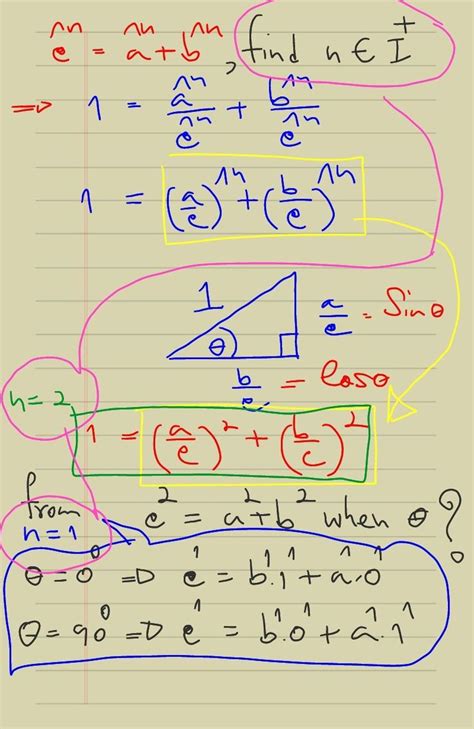 e^n = a^n + b^n , find n ∈ I^+
⇒ 1 = a^n/e^n + b^n/e^n
1 = (a/e)^n + (b/e)^n
1 θ a/e = Sinθ
b/e = Cosθ
n=2 1 = (a/e)^2 + (b/e)^2
from e^2 = a^2 + b^2 when θ?
n=1
θ = 0° ⇒ e^1 = b^1.1^1 + a^1.0^1
θ = 90° ⇒ e^1 = b^1.0^1 + a^1.1^1